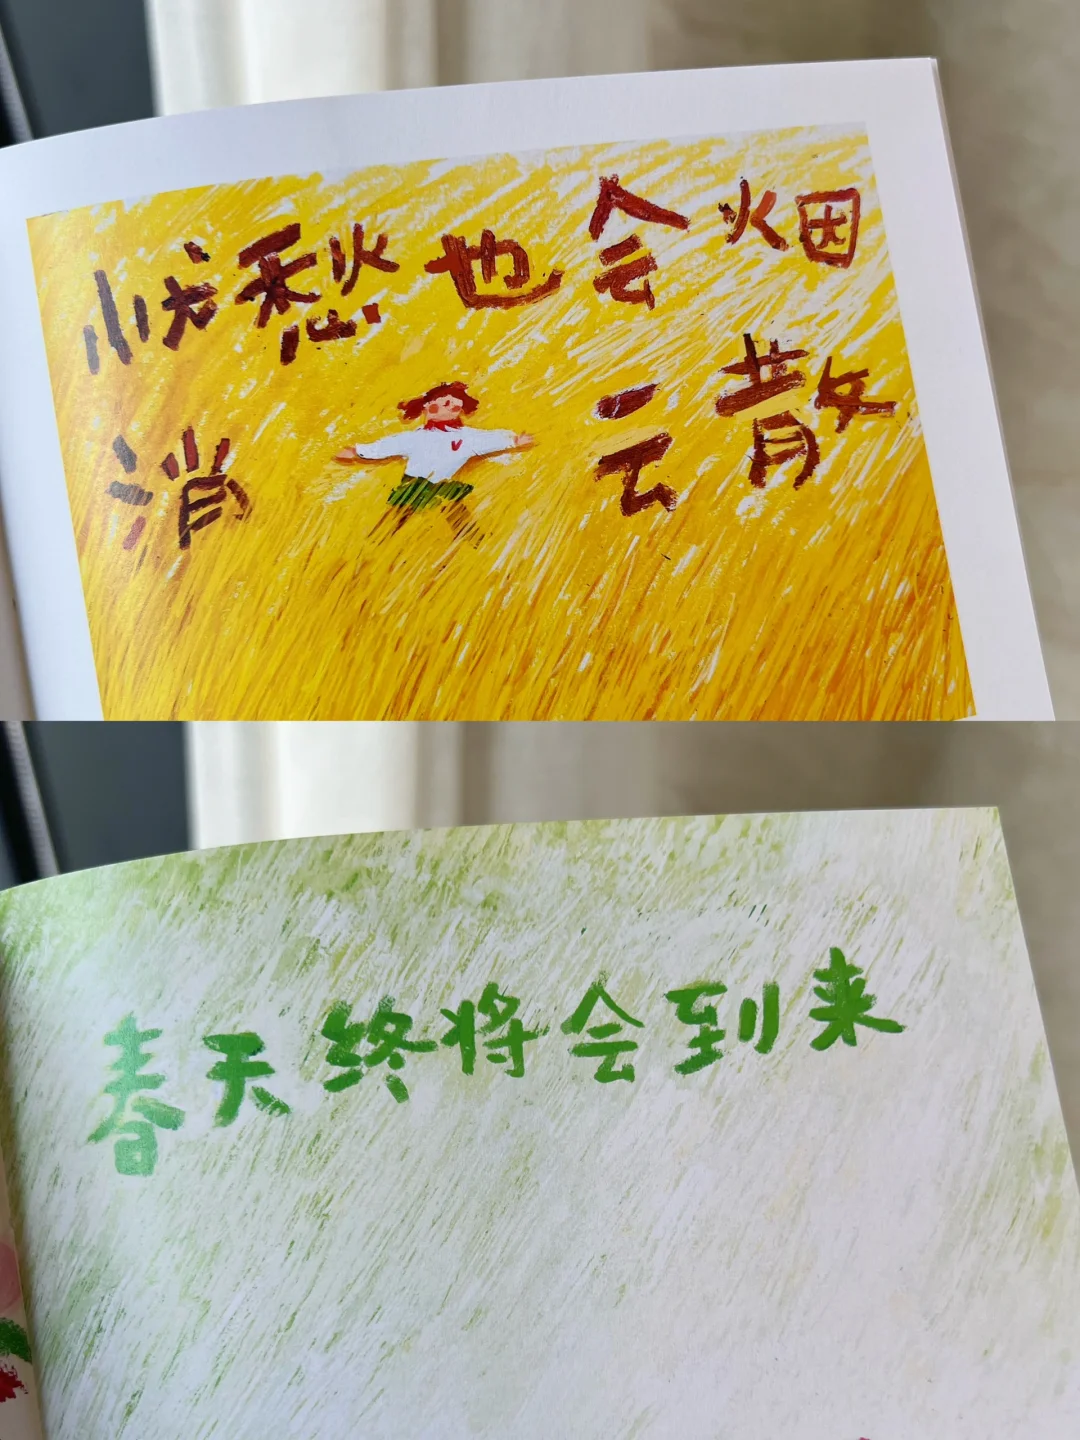 忧愁也会烟
消云散
春天终将会到来